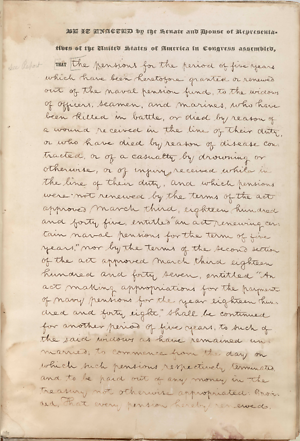 BE IT ENACTED by the Senate and House of Representa-
tives of the United States of America in Congress assembled,
THAT the pensions for the period of five years
which have been heretofore granted or renewed
out of the naval pension fund, to the widows
of officers, seamen, and marines, who have
been killed in battle, or died by reason of
a wound received in the line of their duty,
or who have died by reason of disease con-
tracted or of a casualty by drowning or
otherwise, or of injury received while in
the line of their duty, and which pensions
were not renewed by the terms of the act
approved March third, eighteen hundred
and forty five, entitled "an act renewing cer-
tain naval pensions for the term of five
years," nor by the terms of the second section
of the act approved March third eighteen
hundred and forty seven, entitled "An
act making appropriations for the payment
of navy pensions for the year eighteen hun-
dred and forty eight" shall be continued
for another period of five years, to such of
the said widows as have remained un-
married, to commence from the day on
which such pensions respectively terminated
and to be paid out of any money in the
treasury not otherwise appropriated: Provi-
ded, That every pension hereby renewed